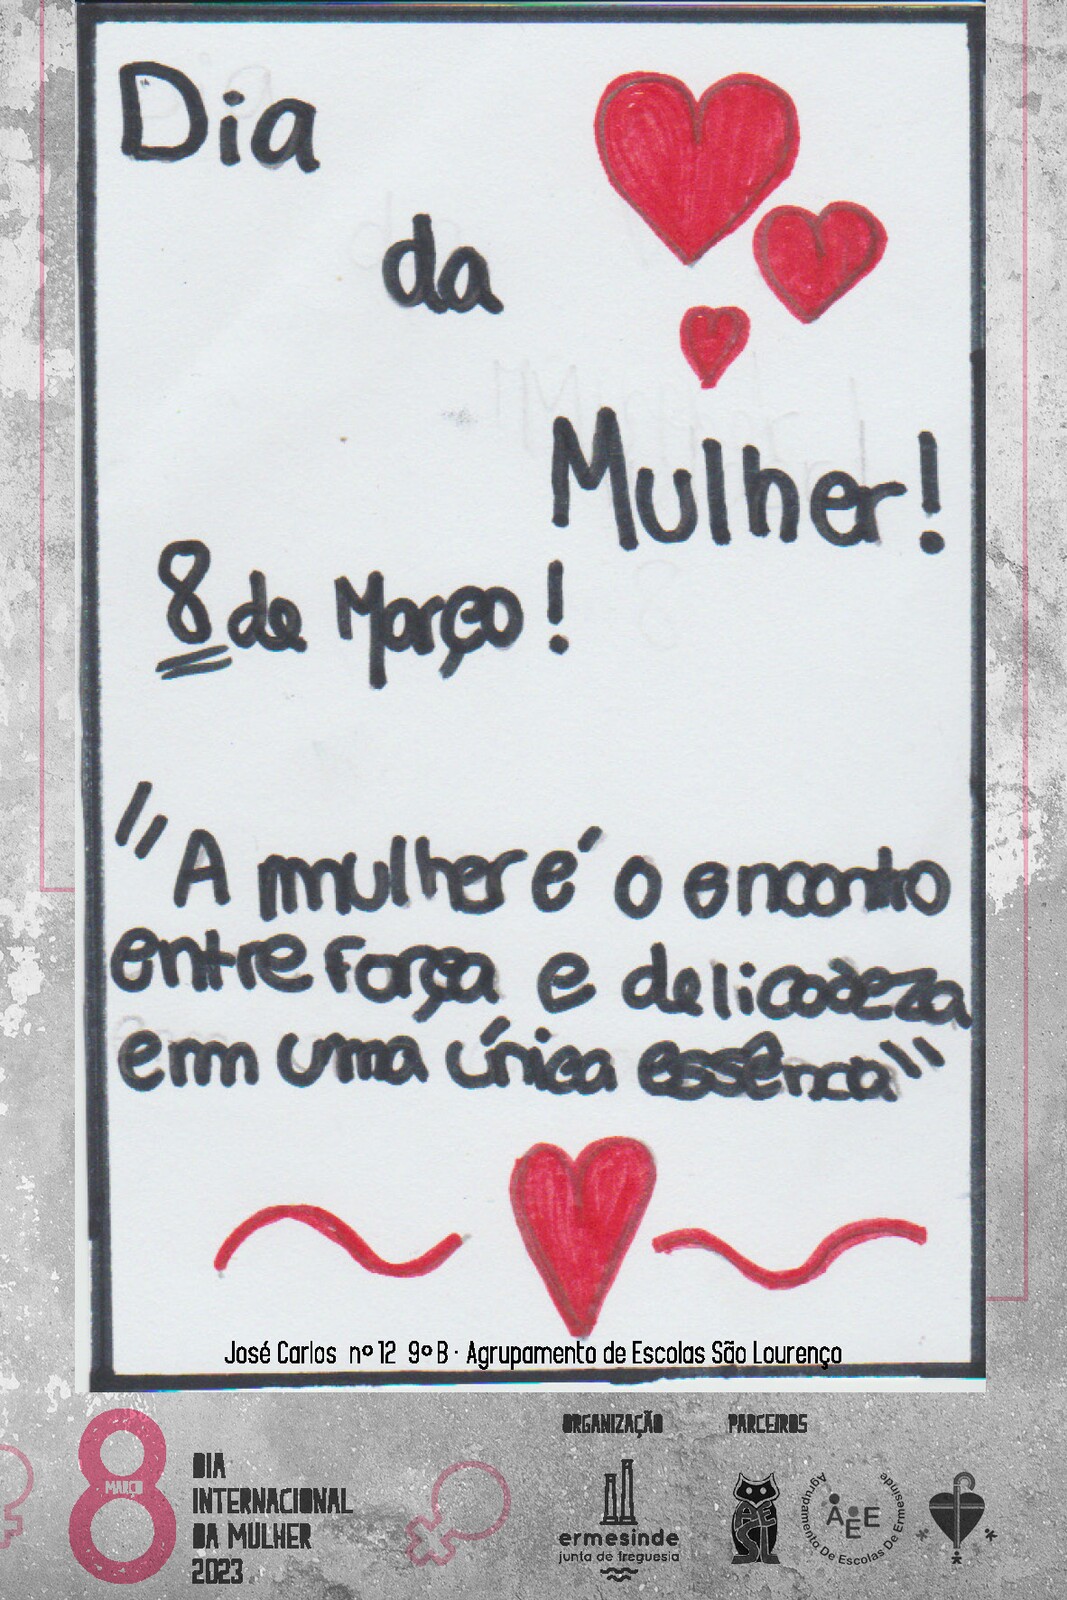 Dia
da
Mulher!
8 de Março!
"A mulher é o encontro
entre força e delicadeza
em uma única essência"
José Carlos nº 12 9º B · Agrupamento de Escolas São Lourenço
8
MARÇO
DIA
INTERNACIONAL
DA MULHER
2023
ORGANIZAÇÃO
ermesinde
junta de freguesia
PARCEIROS
AESL
AEE
Agrupamento De Escolas De Ermesinde